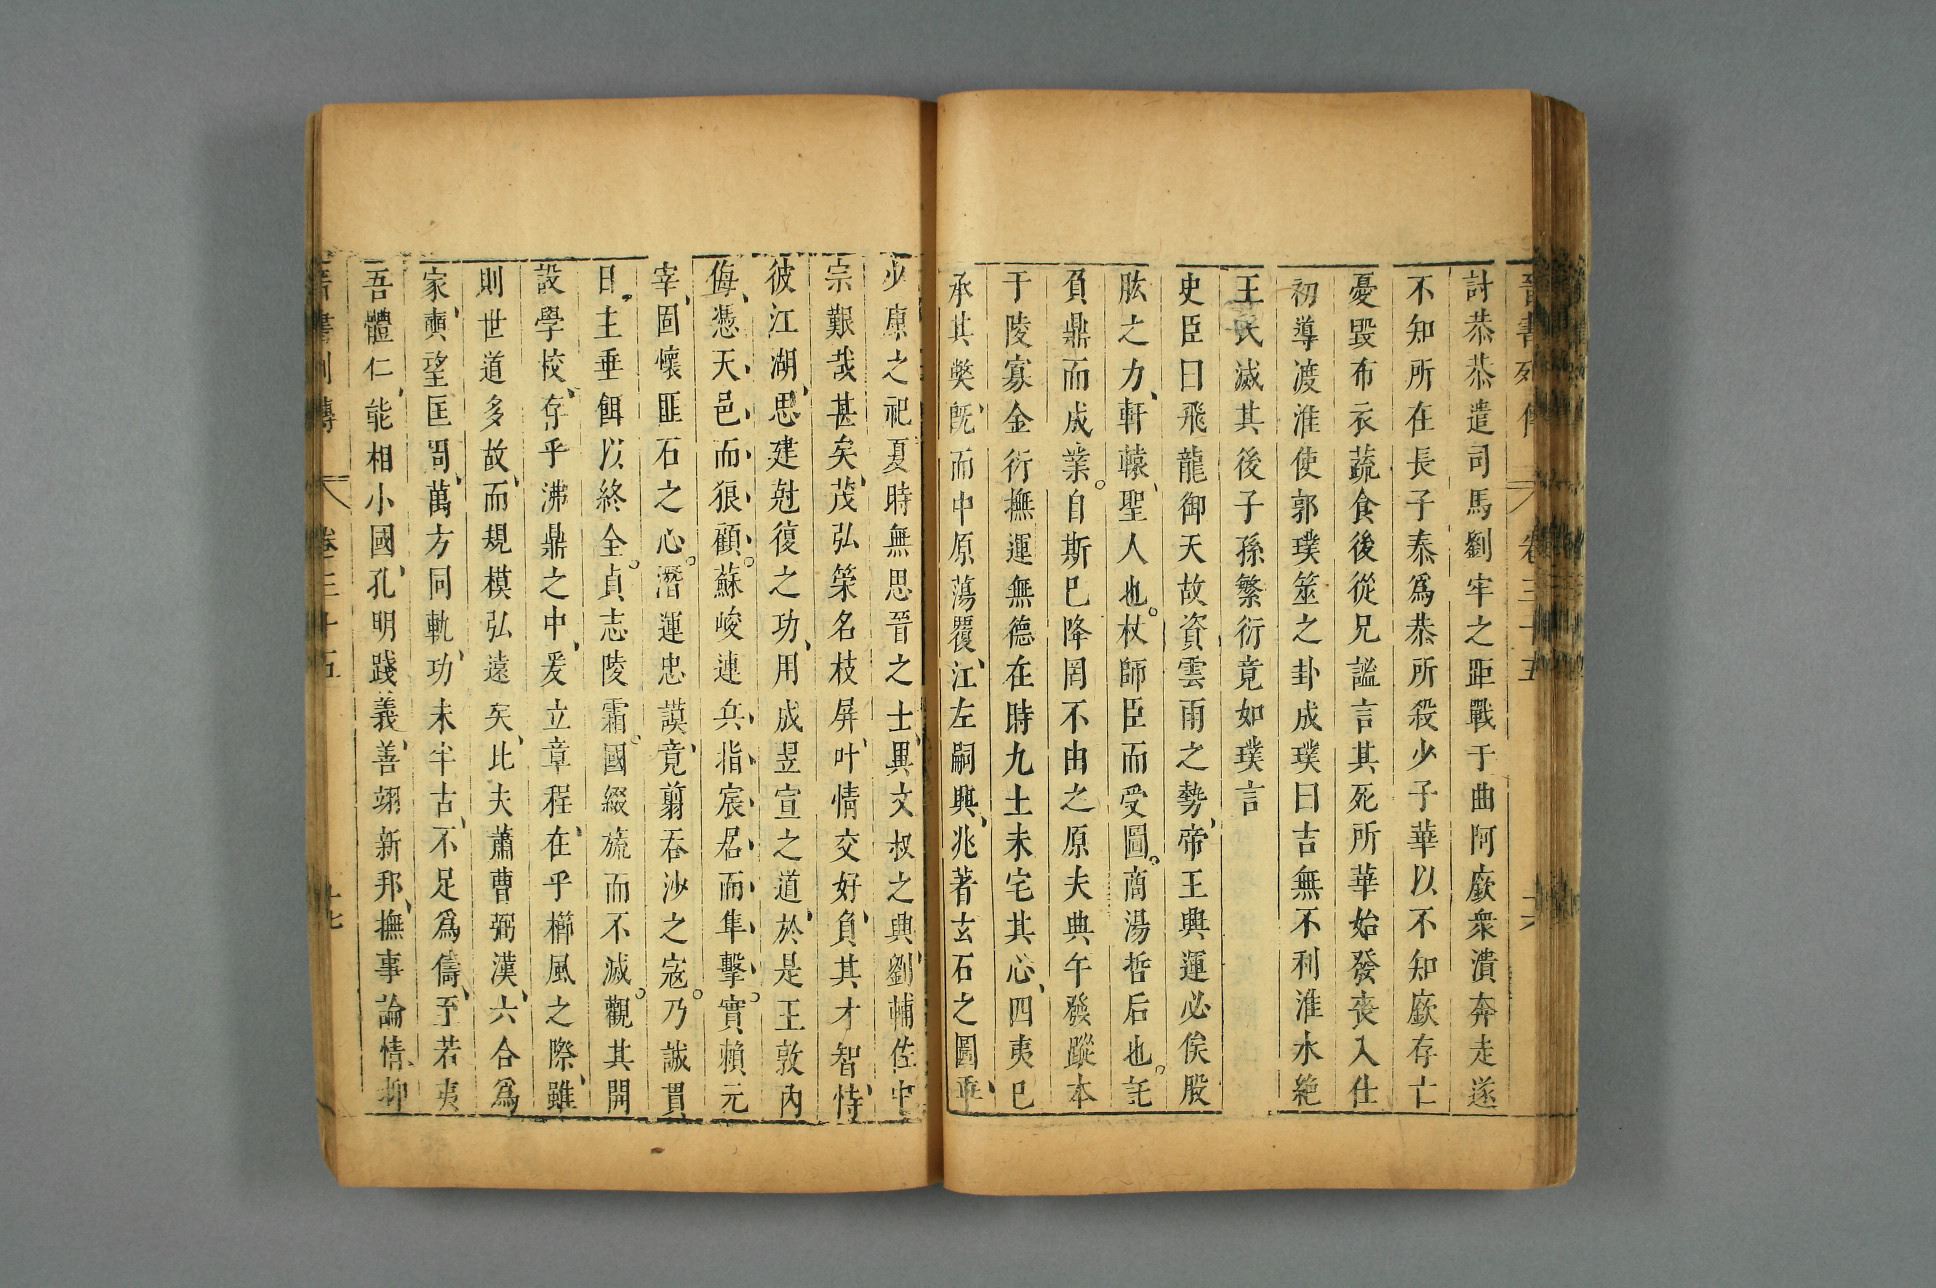 晉書列傳 卷三十五 十六
討恭恭遣司馬劉牢之距戰于曲阿廞衆潰奔走遂
不知所在長子泰爲恭所殺少子華以不知廞存亡
憂毀布衣蔬食後從兄謐言其死所華始發喪入仕
初導渡淮使郭璞筮之卦成璞曰吉無不利淮水絶
王氏滅其後子孫繁衍竟如璞言
史臣曰飛龍御天故資雲雨之勢、帝王興運必俟股
肱之力、軒轅、聖人也。杖師臣而受圖。商湯哲后也。託
負鼎而成業。自斯已降罔不由之原夫典午發蹤本
于陵寡金行撫運無德在時九土未宅其心、四夷已
承其獘、旣而中原蕩覆、江左嗣興、兆著玄石之圖、乖、
少康之祀夏時無思晉之士、異文叔之興、劉輔佐中
宗艱哉甚矣、茂弘策名枝屏、叶情交好、負其才智、恃
彼江湖、思建尅復之功、用成翌宣之道、於是王敦內
侮、憑天邑而狼顧。蘇峻連兵、指宸居而隼擊。實賴元
宰、固懷匪石之心。潛運忠謨、竟翦吞沙之寇。乃誠貫
日、主垂餌以終全。貞志陵霜。國綴旒而不滅。觀其開
設學校、存乎沸鼎之中、爰立章程、在乎櫛風之際、雖
則世道多故、而規模弘遠矣、比夫蕭曹弼漢、六合爲
家、奭望匡周、萬方同軌、功未半古、不足爲儔、至若夷
吾體仁、能相小國、孔明踐義、善翊新邦、撫事論情、抑
晉書列傳 卷三十五 十七